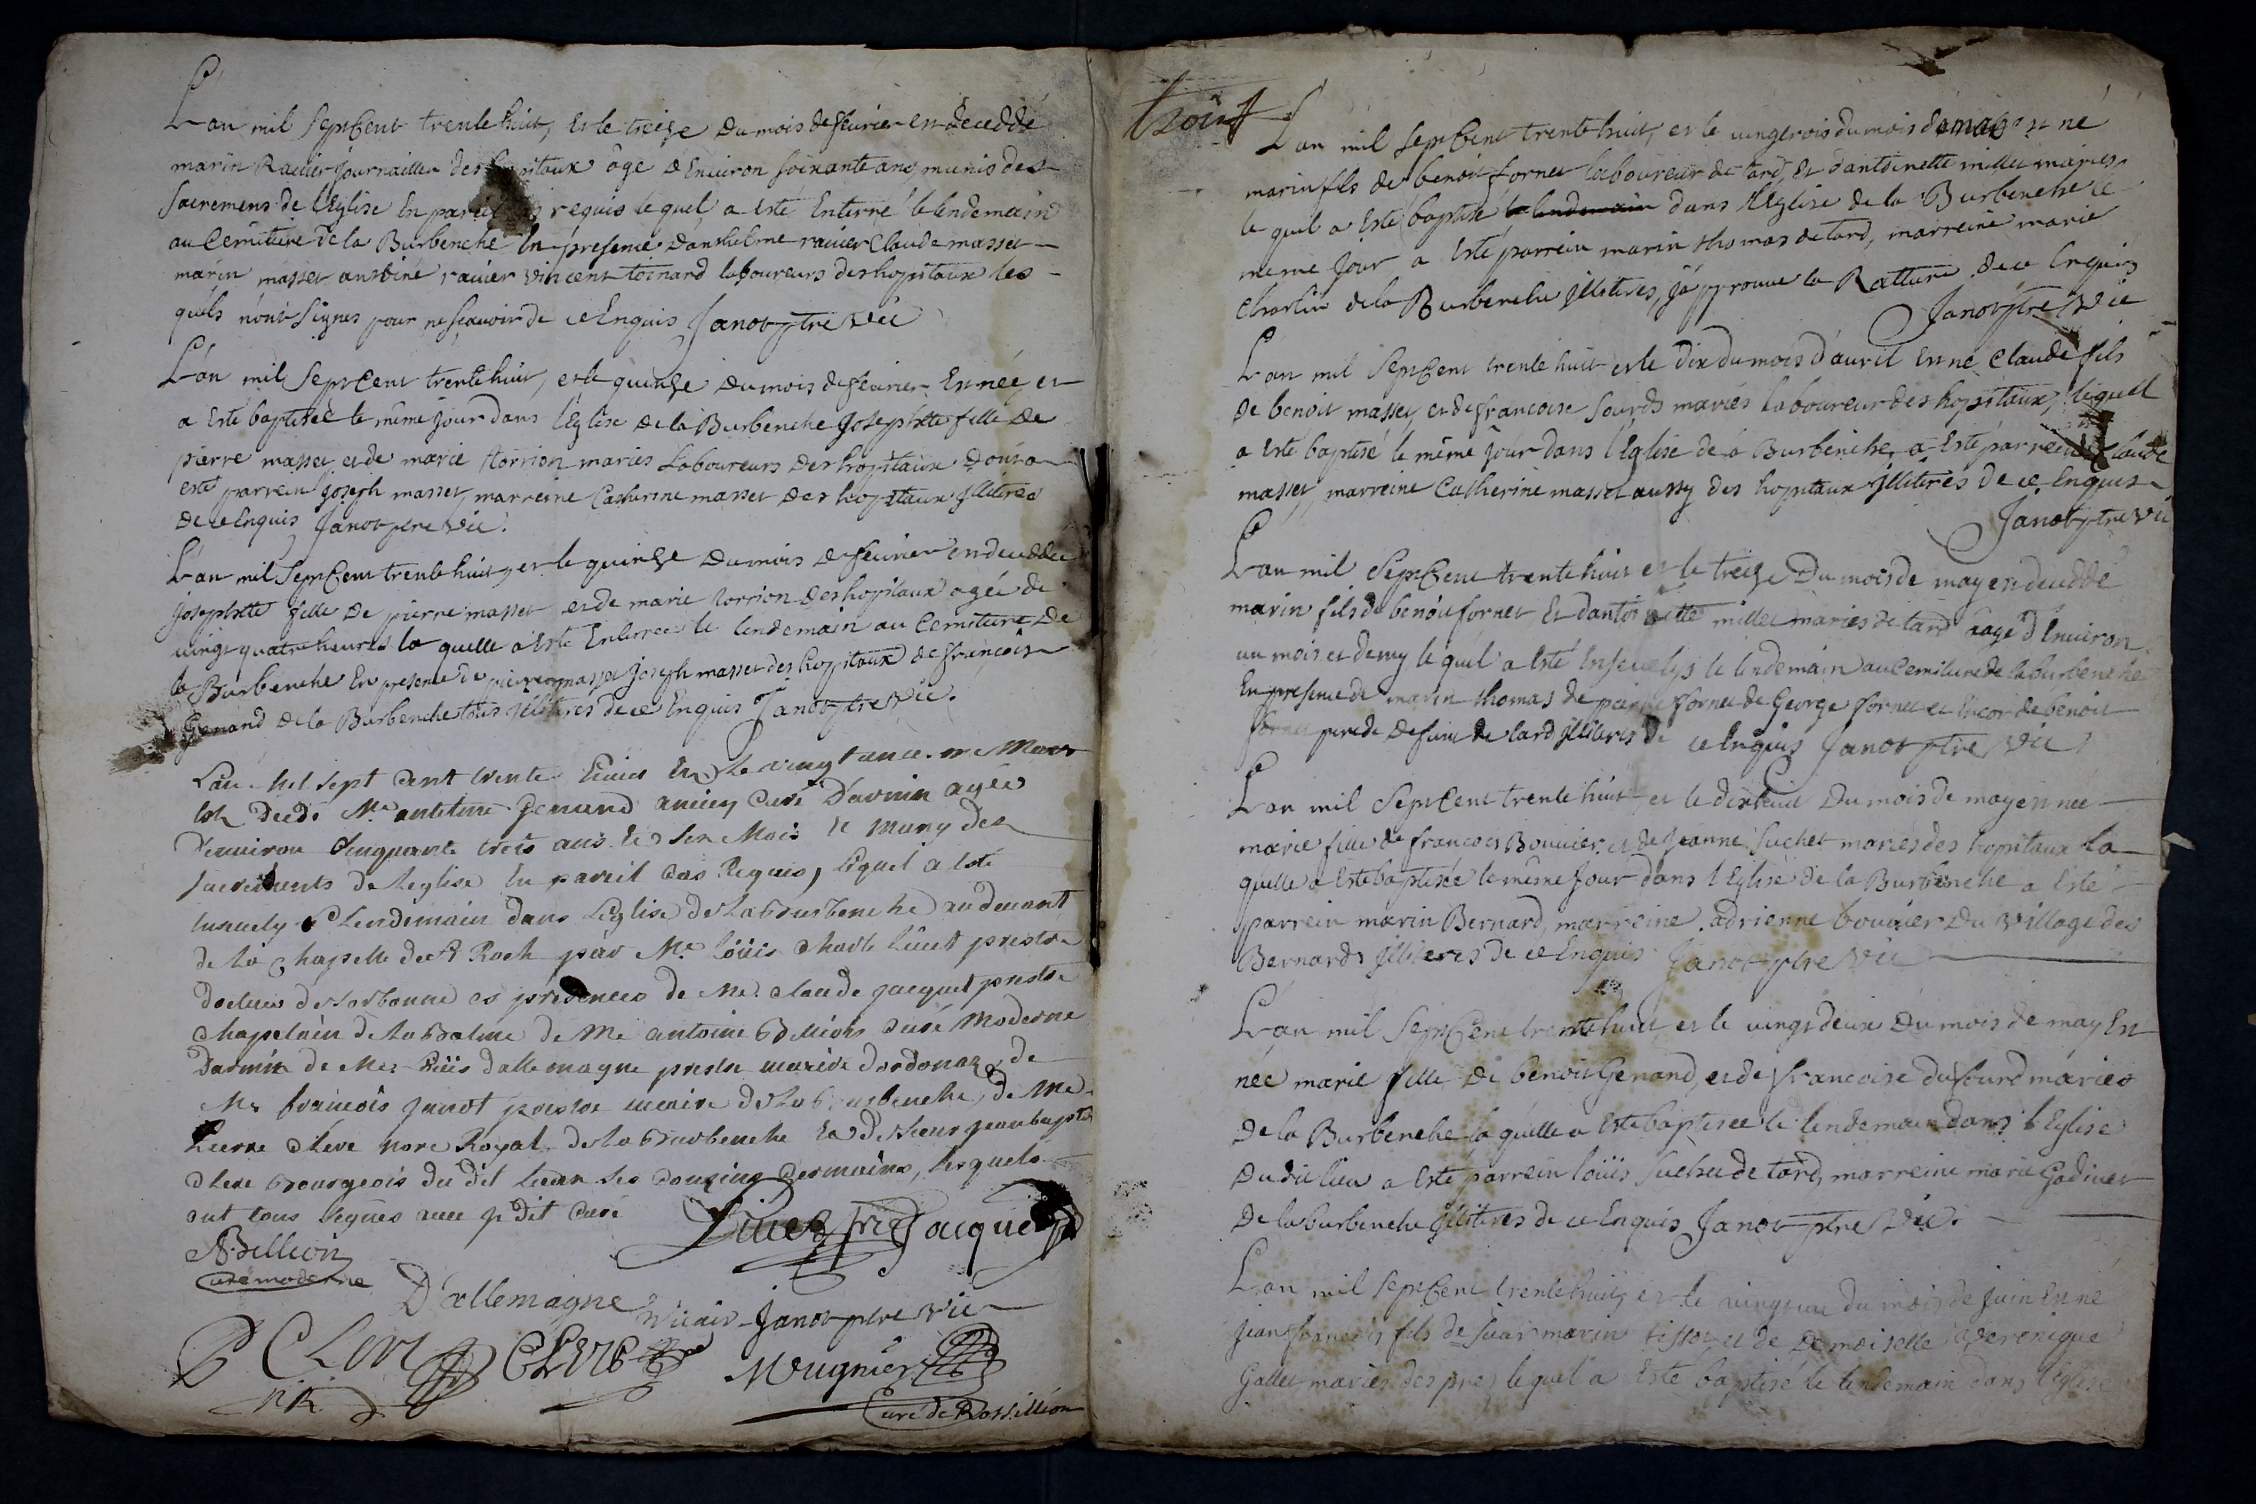 L'an mil sept Cent trente huit, et le treize du mois de feurier est decedde
marin Rauier Journaillier des hopitaux âge d'Enuiron soixante ans, munis des
sacremens de l'Eglise En pareil cas requis le quel a esté Enterré le lendemain
au Cemitiere de la Burbenche En presence d'anthelme rauier Claude masset
marin masset antoine rauier vincent toinard laboureurs des hopitaux les
quels n'ont signes pour ne sçauoir de ce Enquis Janot ptre vic
L'an mil sept Cent trente huit, et le quinze du mois de feurier Est née, et
a Esté baptisée le même jour dans l'Eglise de la Burbenche Josephtte fille de
pierre masset et de marie torrion maries Laboureurs des hopitaux dont a
esté parrein Joseph masset, marreine Catherine masset des hopitaux jllitires
de ce Enquis Janot ptre vic.
L'an mil sept Cent trente huit, et le quinze du mois de feurier est deceddee
Josephtte fille de pierre masset et de marie torrion des hopitaux agée de
uingt quatre heures la quelle a Esté Enterree le lendemain au Cemitiere de
la Burbenche En presence de pierre masset Joseph masset des hopitaux de francois
Genand de la Burbenche tous jllitires de ce Enquis Janot ptre vic.
L'an Mil sept cent trente huict Et le vingt de Mars
Est decedé Mre antelme Genand ancien Curé D'arnin agée
D'enuiron Cinquante trois ans Et six Mois Et muny des
sacrements de leglise En pareil Cas Requis, Lequel a Esté
Enseuely Le Lendemain dans Leglise de La burbenche au deuant
de La Chapelle de St Roch par Me Loüis Charle Liuet prestre
docteur de sorbonne es presences de Me Claude jacquet prestre
Chapelain de La balme de Me antoine Bellion Curé Moderne
Darnin de Me Loüis dallemagne prestre vicaire dordonaz, de
Me françois janot prestre vicaire de La burbenche, de Me
Pierre Cleve Nore Royal de La burbenche Et de sieur jean baptiste
Cleve bourgeois du dit Lieu ses Cousins germains, Lesquels
ont tous signes auec le dit Curé
Liuet ptre Jacquet
A. Bellion
Curé moderne
D'allemagne Vicair Janot ptre vic
P Clerc Clerc Mugnier
Curé de Rossillion
L'an mil sept Cent trente huit, et le uingt trois du mois de mars est né
marin fils de benoit fornet laboureur de tard, Et d'antoinette millet maries
le quel a Esté baptisé le lendemain dans l'Eglise de la Burbenche le
meme Jour a Esté parrein marin thomas de tard, marreine marie
Charlin de la Burbenche jllitires, j'approuue la Ratture de ce Enquis
Janot ptre vic
L'an mil sept Cent trente huit et le dix du mois d'auril Est né Claude fils
de benoit masset, et de francoise sourd mariés laboureur des hopitaux, lequel
a Esté baptisé le même jour dans l'Eglise de la Burbenche, a Esté parrein Claude
masset, marreine Catherine masset aussy des hopitaux jllitires de ce Enquis
Janot ptre vic
L'an mil sept Cent trente huit et le treize du mois de may est deceddé
marin fils de benoit fornet Et d'antoinette millet maries de tard aagé d'Enuiron
un mois et demy le quel a Esté Enseuelys le lendemain au Cemitiere de la burbenche
En presence de marin thomas de pierre fornet de George fornet et Encor de benoit
fornet pere de defunt de tard jllitires de ce Enquis Janot ptre vic
L'an mil sept Cent trente huit et le dixhuit du mois de may est née
marie fille de francois Bouuier et de Jeanne suchet maries des hopitaux la
quelle a Esté baptisée le même Jour dans l'Eglise de la Burbenche a Esté
parrein marin Bernard, marreine adrienne bouuier du Village des
Bernards jlliteres de ce Enquis Janot ptre vic
L'an mil sept Cent trente huit et le uingt deux du mois de may Est
née marie fille de benoit Genand, et de francoise dusourd maries
de la Burbenche la quelle a Esté baptisee le lendemain dans l'Eglise
du dit lieu a Esté parrein loüis suchet de tard, marreine marie Godinet
de la burbenche jllitires de ce Enquis Janot ptre vic.
L'an mil sept Cent trente huit, et le uingt un du mois de juin Est né
jean francois fils de sieur marin tissot, et de Demoiselle Veronique
Gallet maries des pres lequel a Esté baptisé le lendemain dans l'Eglise